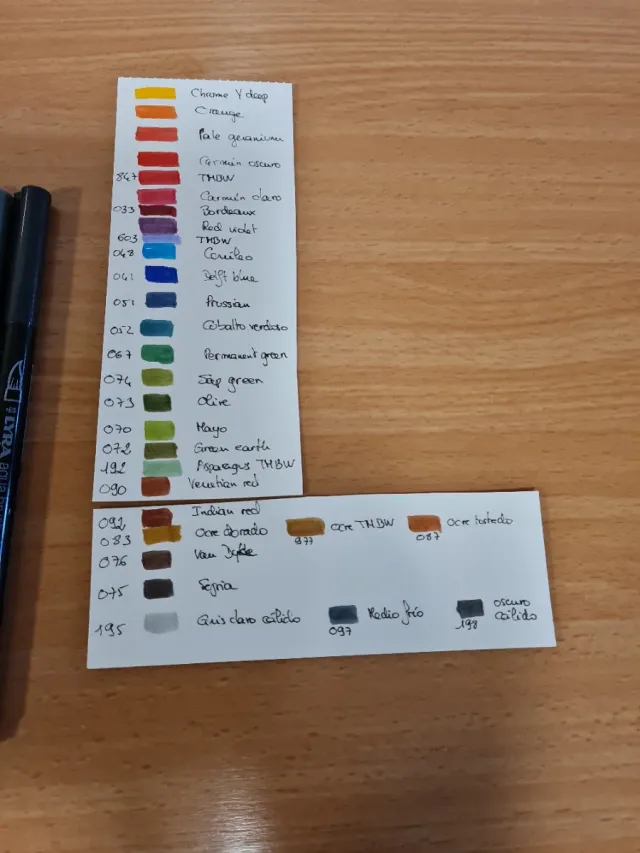 Chrome Y deep
Orange
Pale geranium
Carmín oscuro
847 TMBW
Carmín claro
033 Bordeaux
Red violet
603 TMBW
048
041 Delft blue
051 Prussian
052 Cobalto verdoso
067 Permanent green
074 Sap green
073 Olive
070 Mayo
072 Green earth
192 Asparagus TMBW
090 Venetian red
092 Indian red
083 Ocre dorado
977 Ocre TMBW
087 Ocre tostado
076 Van Dyke
075 Sepia
195 Gris claro cálido
097 Medio frío
198 oscuro cálido
LYRA aqua